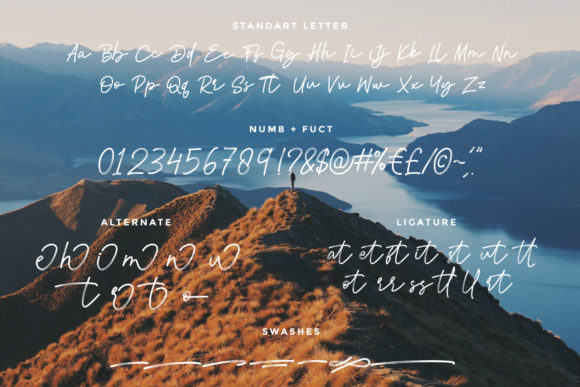 STANDART LETTER
Aa Bb Cc Dd Ee Ff Gg Hh Ii Jj Kk Ll Mm Nn
Oo Pp Qq Rr Ss Tt Uu Vv Ww Xx Yy Zz
NUMB + FUCT
0123456789!?&$@#%€£/©~,:'"
ALTERNATE
LIGATURE
at et it st ut tt
ot rr ss tl ll rt
SWASHES